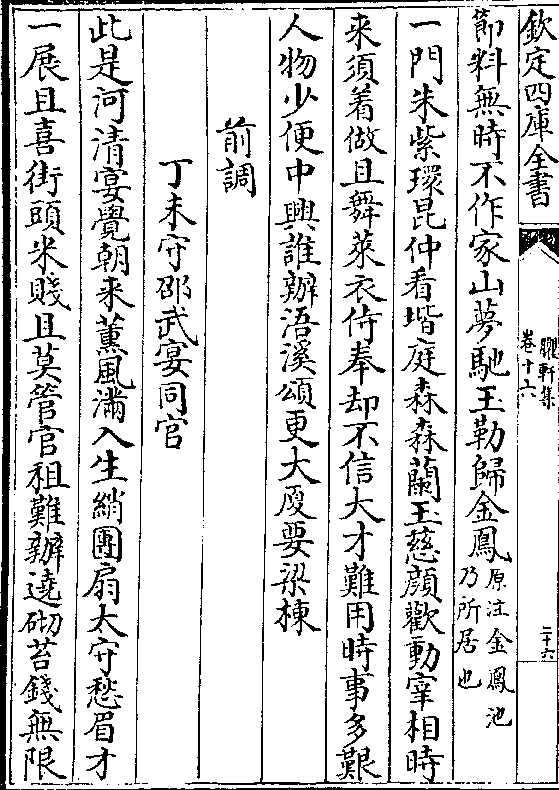 欽定四庫全書
臞軒集
卷十六
二十六
節料無時不作家山夢馳玉勒歸金鳳原注金鳳池
乃所居也
一門朱紫環昆仲看堦庭森森蘭玉慈顔歡動宰相時
来須着做且舞萊衣侍奉却不信大才難用時事多艱
人物少便中興誰辦浯溪頌更大厦要梁棟
前調
丁未守邵武宴同官
此是河清宴覺朝来薰風滿入生綃團扇太守愁眉才
一展且喜街頭米賤且莫管官租難辦遶砌苔錢無限